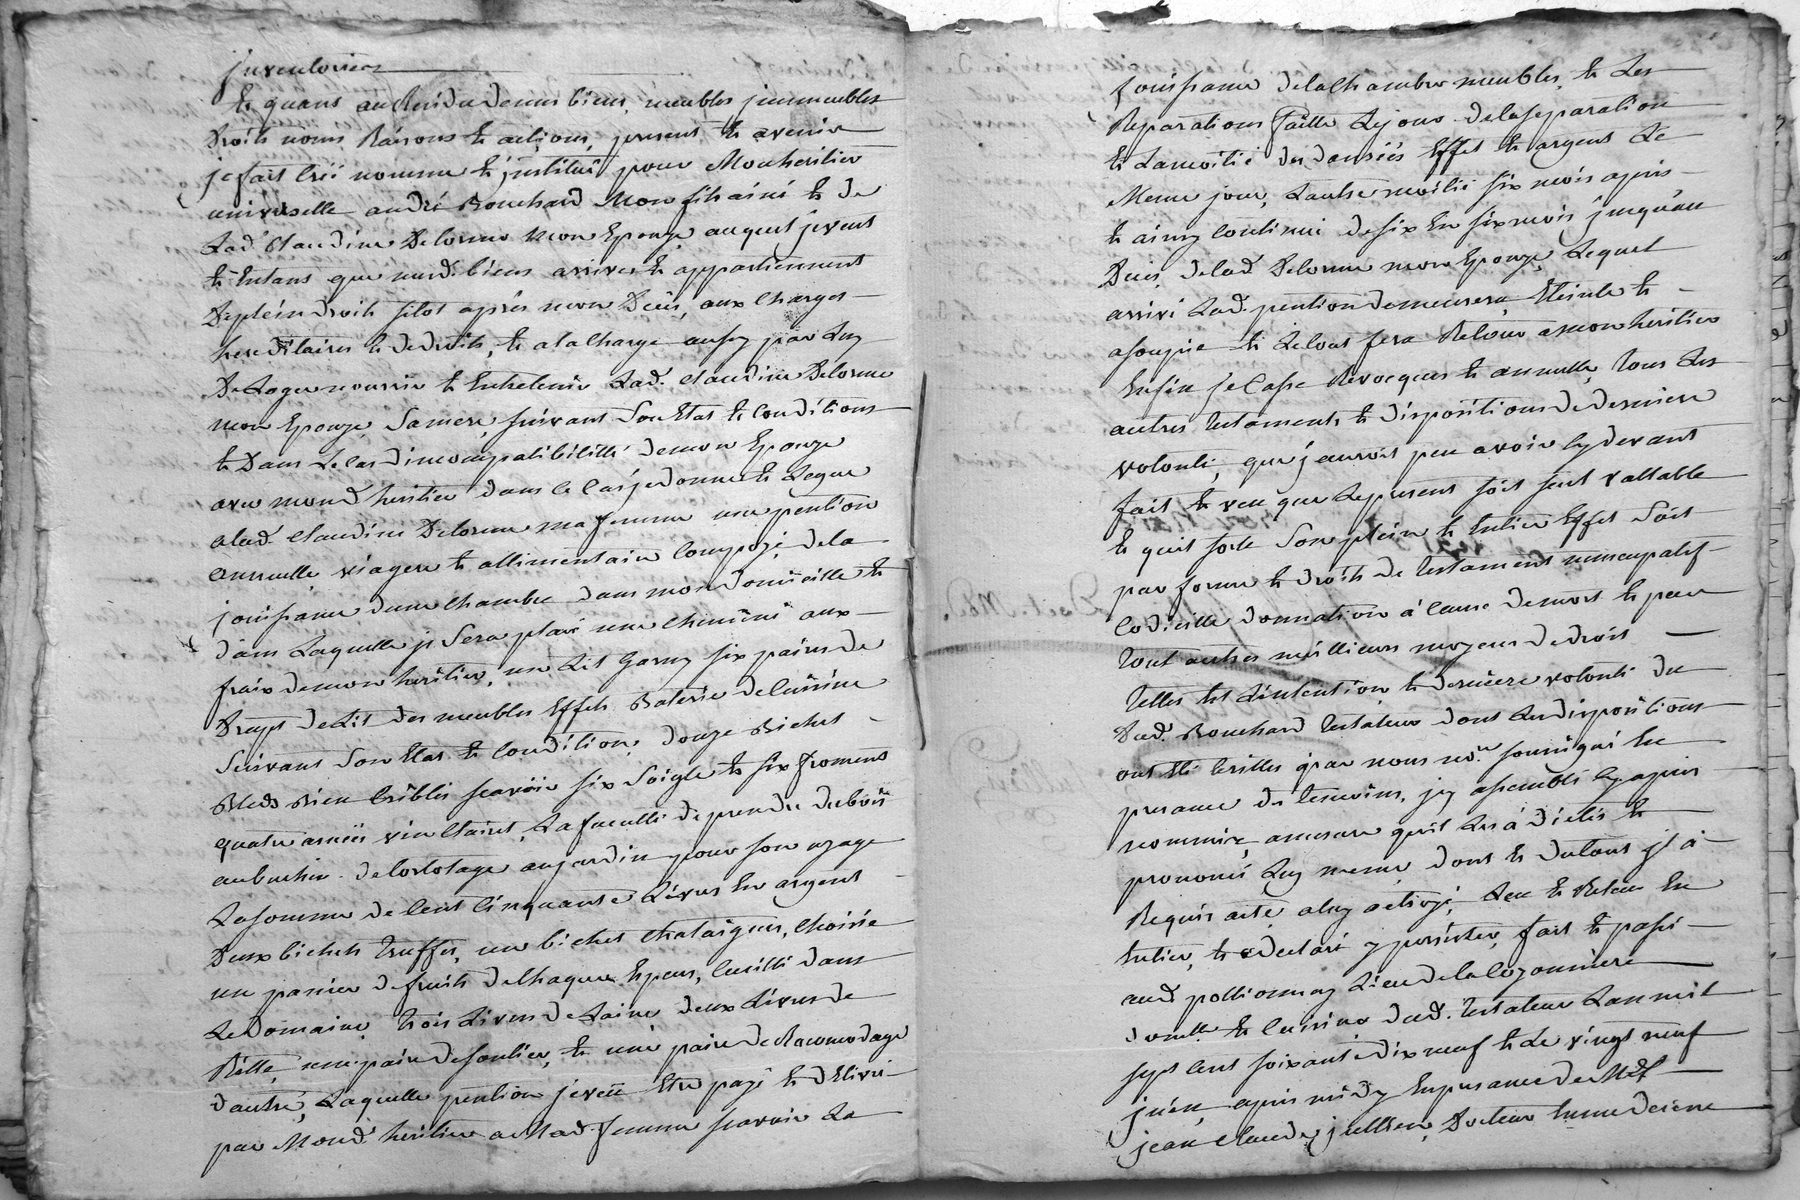 Inventorier
Et quant au Residu de mes biens, meubles jmmeubles
Droits noms Raisons et actions, present et avenir
je fait Créé nomme et jnstitué pour Mon heritier
universelle andré Bouchard Mon fils ainé et de
Lad. Claudine Delorme mon Epouze auquel je veut
et Entans que mesd. biens arrivent et appartiennent
De plein droit sitot après mon Décès, aux Charges
hereditaires et de droits, et ala Charge aussy par Luy
De Loger nourrir et Entretenir Lad. Claudine Delorme
mon Epouze, Sa mere, suivant Son Etat et Conditions
et Dans Le Cas dincompatibilitté de mon Epouze
avec mond. heritier dans Ce Cas je donne et Legue
alad. Claudine Delorme ma femme une pention
annuelle, viagere et allimentaire Compozé, dela
jouissance dune Chambre dans mon domicille et
dans Laquelle jl Sera placé une Cheminé aux
fraix de mon heritier, un Lit Garny six paires de
Draps de Lit des meubles Effets Baterie de Cuisine
Suivant Son Etat et Condition, douze Bichet
Bleds Bien Criblés scavoir six Soigle et six froment
quatre année vin Clairet, La faculté de prendre du bois
au bucher de Lortolage au jardin pour son uzage
La somme de Cent Cinquante Livres En argent
Deux bichets truffes, un bichet Chataignes, Choisie
un panier de fruits de Chaque Espece, Cueilli dans
Le Domaine, trois Livres de Laine deux Livres de
Ritte, une paire de soulier, et une paire de Racomodage
dautre, Laquelle pention je veut Etre payé et delivré
par Mond. heritier a Mad. femme scavoir La
jouissance dela Chambre meubles, et Les
Reparations faitte Le jour dela separation
et La moitié des danrées Effet et argent Le
Meme jour, Lautre moitié six mois apres
et ainsy Continué de six En six mois jusqu'au
Décès, de lad. Delorme mon Epouze, Lequel
arrivé Lad. pention demeurera Eteinte et
asoupie et Le tout fera Retour a mon heritier
Enfin je Casse Revocques et annulle, tous Les
autres testaments et dispositions de derniere
volonté, que j'aurois peu avoir Cy devant
fait et veu que Le present soit seul vallable
et qu'il sorte Son plein et Entier Effet Soit
par forme et droits de testament nuncupatif
Codicille donnation à Cause de mort et par
tout autres meillieurs moyens de droit
telles Est Lintention et derniere volonté du
Dud. Bouchard testateur dont Les dispositions
ont Eté Ecrittes par nous no.re soussigné En
presance des temoins, jcy assemblés Cy apres
nommés, amesure qu'il Les à dictés et
prononcé Luy meme dont Et du tout jl à
Requis acte aluy octroyé, Leu et Releu En
Entier, et a declaré y persister, fait et passé
aud. pollionnay Lieu de la Cozonniere
domlle. et Cuisine dud. testateur Lan mil
sept Cent soixante dix neuf et Le vingt neuf
juin, apres midy En presance de Me
jean Claude jullien, Docteur En medecine